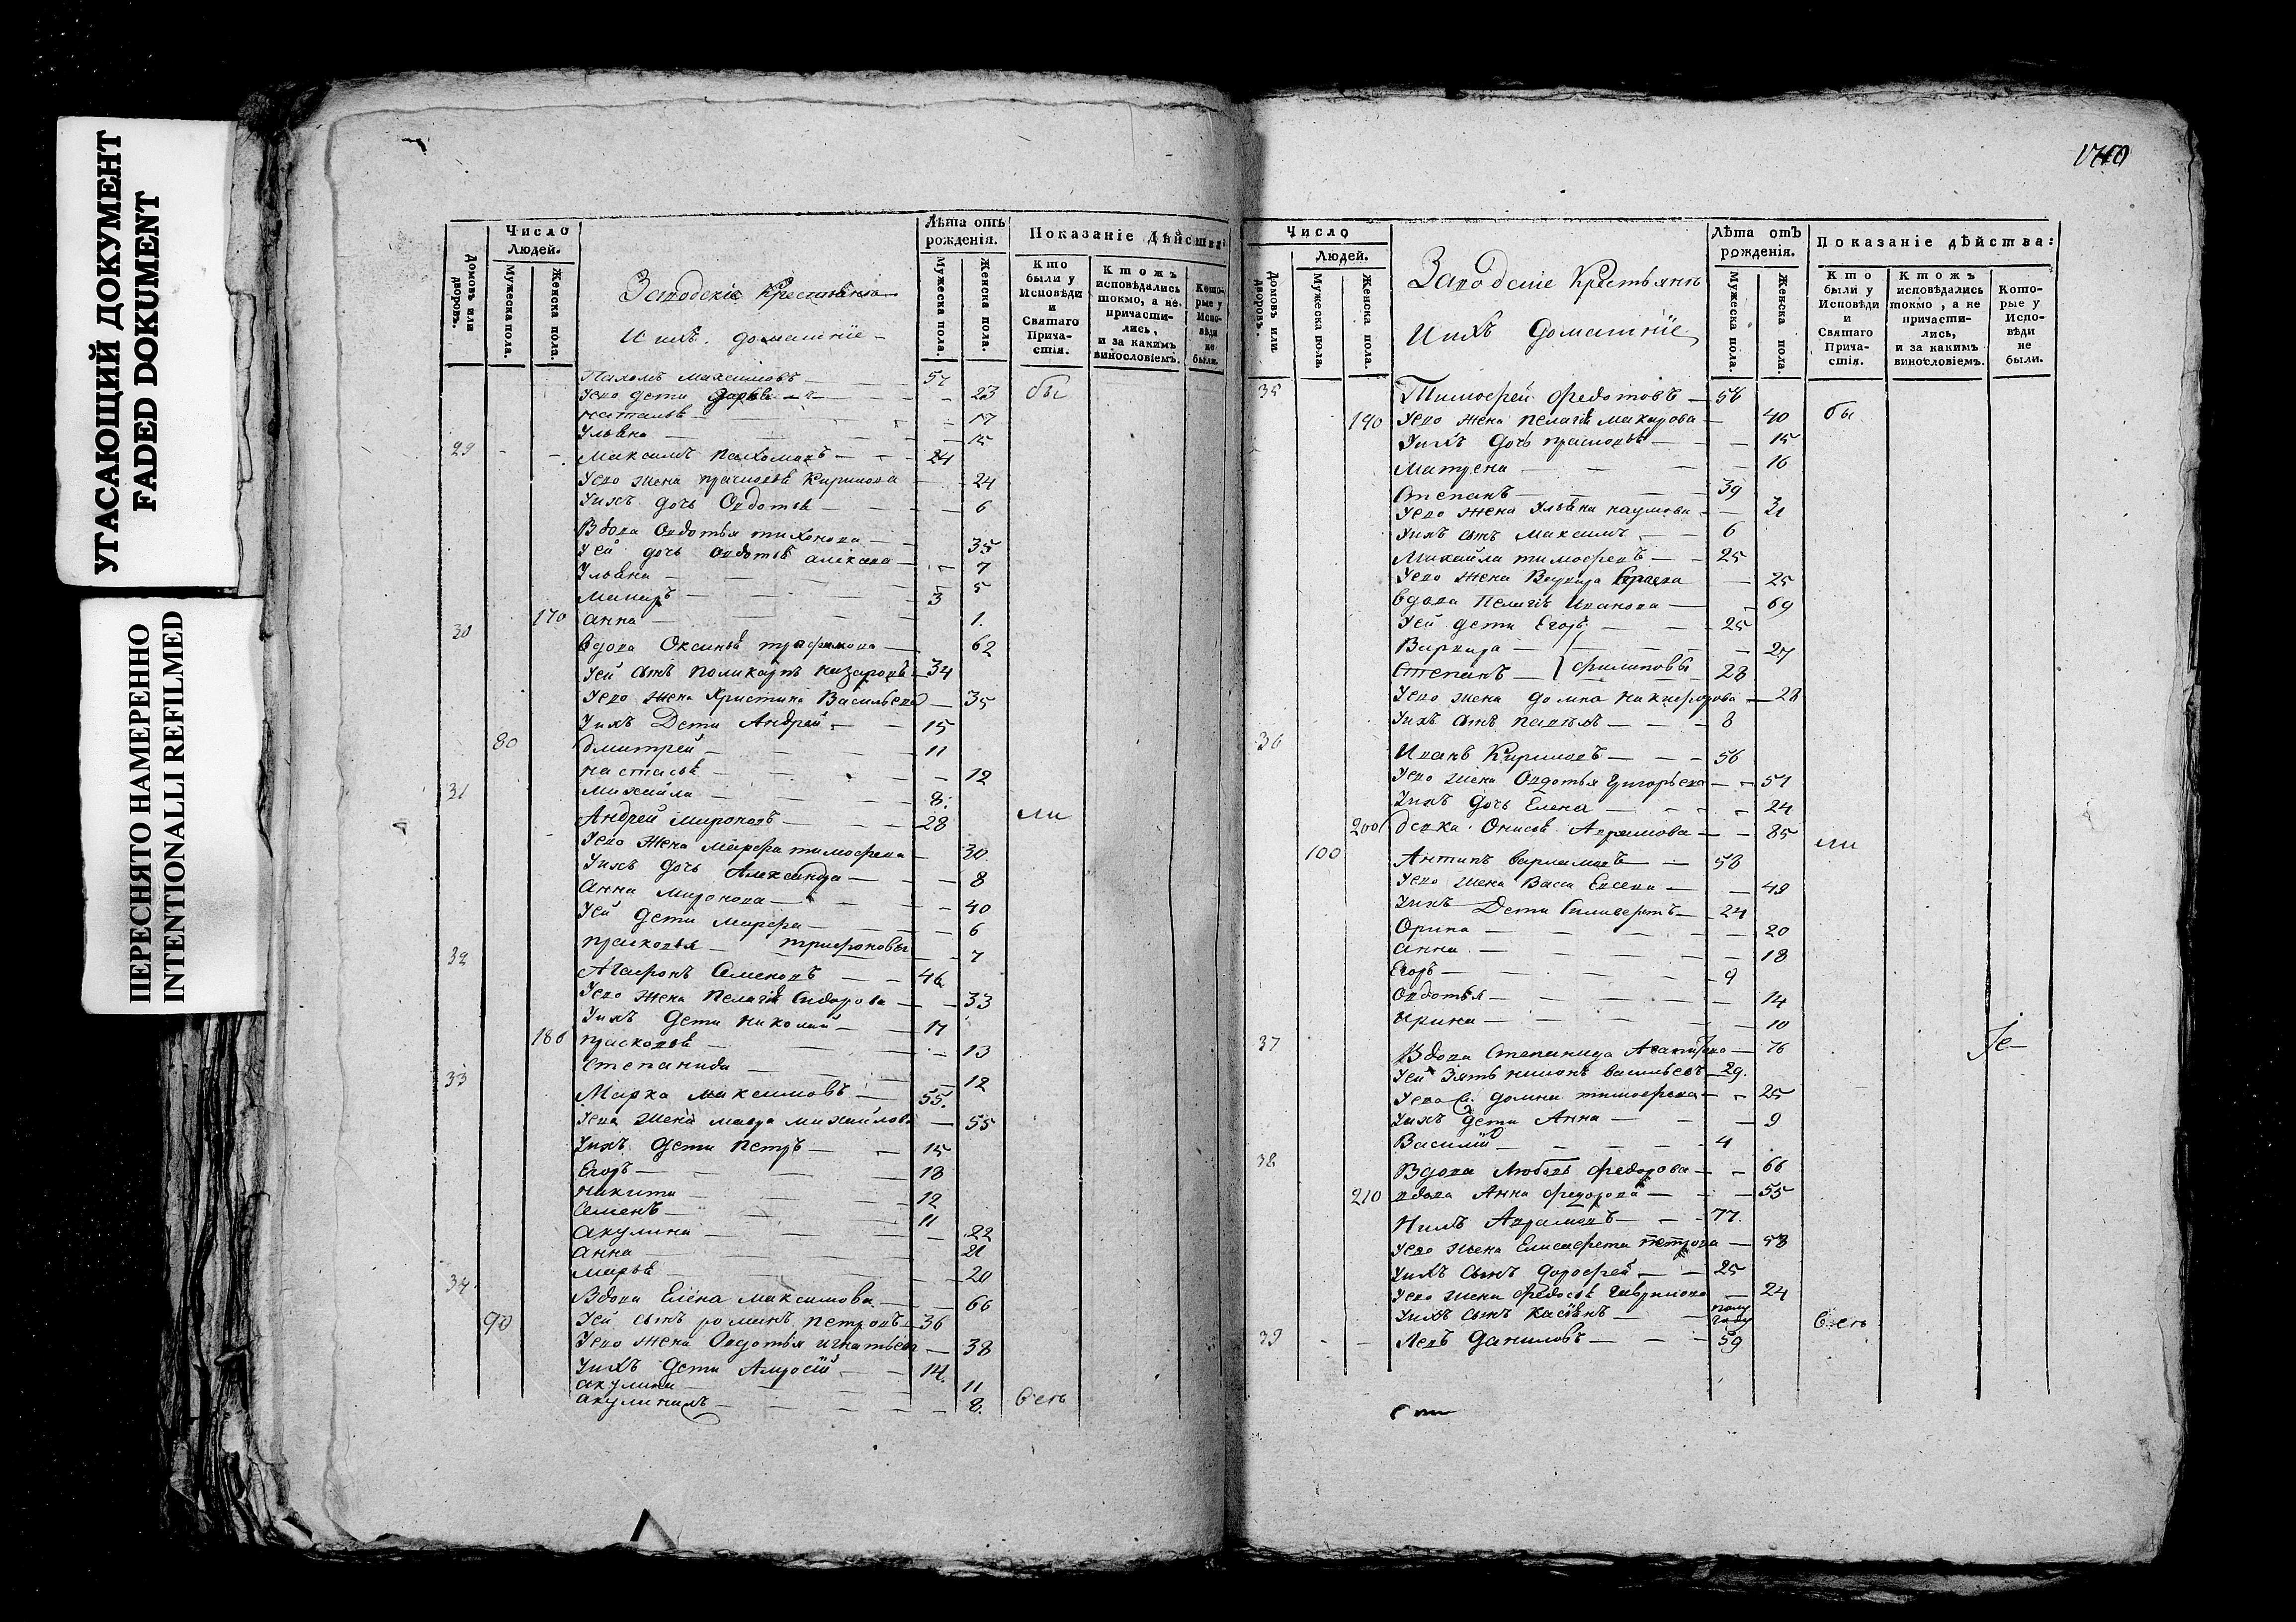 УГАСАЮЩИЙ ДОКУМЕНТ
FADED DOKUMENT
ПЕРЕСНЯТО НАМЕРЕННО
INTENTIONALLI REFILMED
Число Людей.
Домовъ или дворовъ.
Мужеска пола.
Женска пола.
Заводскіе Крестьяна
И ихъ домашніе
Лѣта отъ рожденія.
Мужеска пола.
Женска пола.
Показаніе дѣйства:
Кто были у Исповѣди и Святаго Причастія.
Ктожъ исповѣдались токмо, а не причастились, и за какимъ винословіемъ.
Которые у Исповѣди не были.
Пахомъ Максимовъ 57
Ево дети Дарья 23 бы
Наталья 17
Ульяна 15
29 Максимъ Пахомовъ 24
Ево жена Прасковья Кирилова 24
Ихъ дочь Овдотья 6
Вдова Овдотья Тихонова 35
Ей дочь Овдотья 7
Ульяна 5
Макаръ 3
170 Анна 1.
30 Вдова Оксинья Трафимова 62
Ей сынъ Поликарпъ Назаровъ 34
Ево жена Христина Васильева 35
Ихъ Дети Андрей 15
80 Дмитрей 11
Настасья 12
31 Михайла 8.
Андрей Мироновъ 28 ли
Ево жена Марфа Тимофеева 30
Ихъ дочь Александра 8
Анна Миронова 40
Ей дети Марфа 6
Прасковья Трифоновы 7
32 Агафонъ Семеновъ 46
Ево жена Пелагія Сидорова 33
Ихъ дети Николай 17
180 Прасковья 13
Степанида 12
33 Марка Максимовъ 55.
Ева жена Мавра Михайлова 55
Ихъ дети Петръ 15
Егоръ 18
Никита 12
Семенъ 11
Акулина 22
Анна 21
Марья 20
34 Вдова Елена Максимова 66
90 Ей сынъ Романъ Петровъ 36
Ево жена Овдотья Игнатьева 38
Ихъ дети Амросій 14.
Акулина 11
8. всѣ
Число Людей.
Домовъ или дворовъ.
Мужеска пола.
Женска пола.
Заводскіе Крестьянъ
И ихъ домашніе
Лѣта отъ рожденія.
Мужеска пола.
Женска пола.
Показаніе дѣйства:
Кто были у Исповѣди и Святаго Причастія.
Ктожъ исповѣдались токмо, а не причастились, и за какимъ винословіемъ.
Которые у Исповѣди не были.
35 Тимофей Федотовъ 56
190 Ево жена Пелагія Макарова 40 бы
Ихъ дочь Прасковья 15
Матрена 16
Степанъ 39
Ево жена Ульяна Наумова 31
Ихъ сынъ Максимъ 6
Михайла Тимофеевъ 25
Ево жена Варвара 25
Вдова Пелагія Иванова 69
Ей дети Егоръ 25
Варвара 27
Степанъ Филиповы 28
Ево жена Домна Никифорова 28
Ихъ сынъ Павелъ 8
36 Иванъ Кириловъ 56
Ево жена Овдотья Григорьева 51
Ихъ дочь Елена 24
200 Девка Онисья Аврамова 85
100 Антипъ Варламовъ 58 ли
Ево жена Васа Евсеева 49
Ихъ Дети Силиверстъ 24
Орина 20
Анна 18
Егоръ 9
Овдотья 14
Ирина 10
37 Вдова Степанида 76 Не
Ей Зять Нимонъ Васильевъ 29.
Домна Тимофеева 25
Ихъ дети Анна 9
Василій 4
38 Вдова Любовь Федорова 66
210 Вдова Анна Федорова 55
Нилъ Аврамовъ 77.
Ево жена Елисафета Петрова 58
Ихъ Сынъ Дорофей 25
Ево жена Федосья Гаврилова 24
Ихъ сынъ Касіянъ полу году всѣ
39 Левъ Даниловъ 59